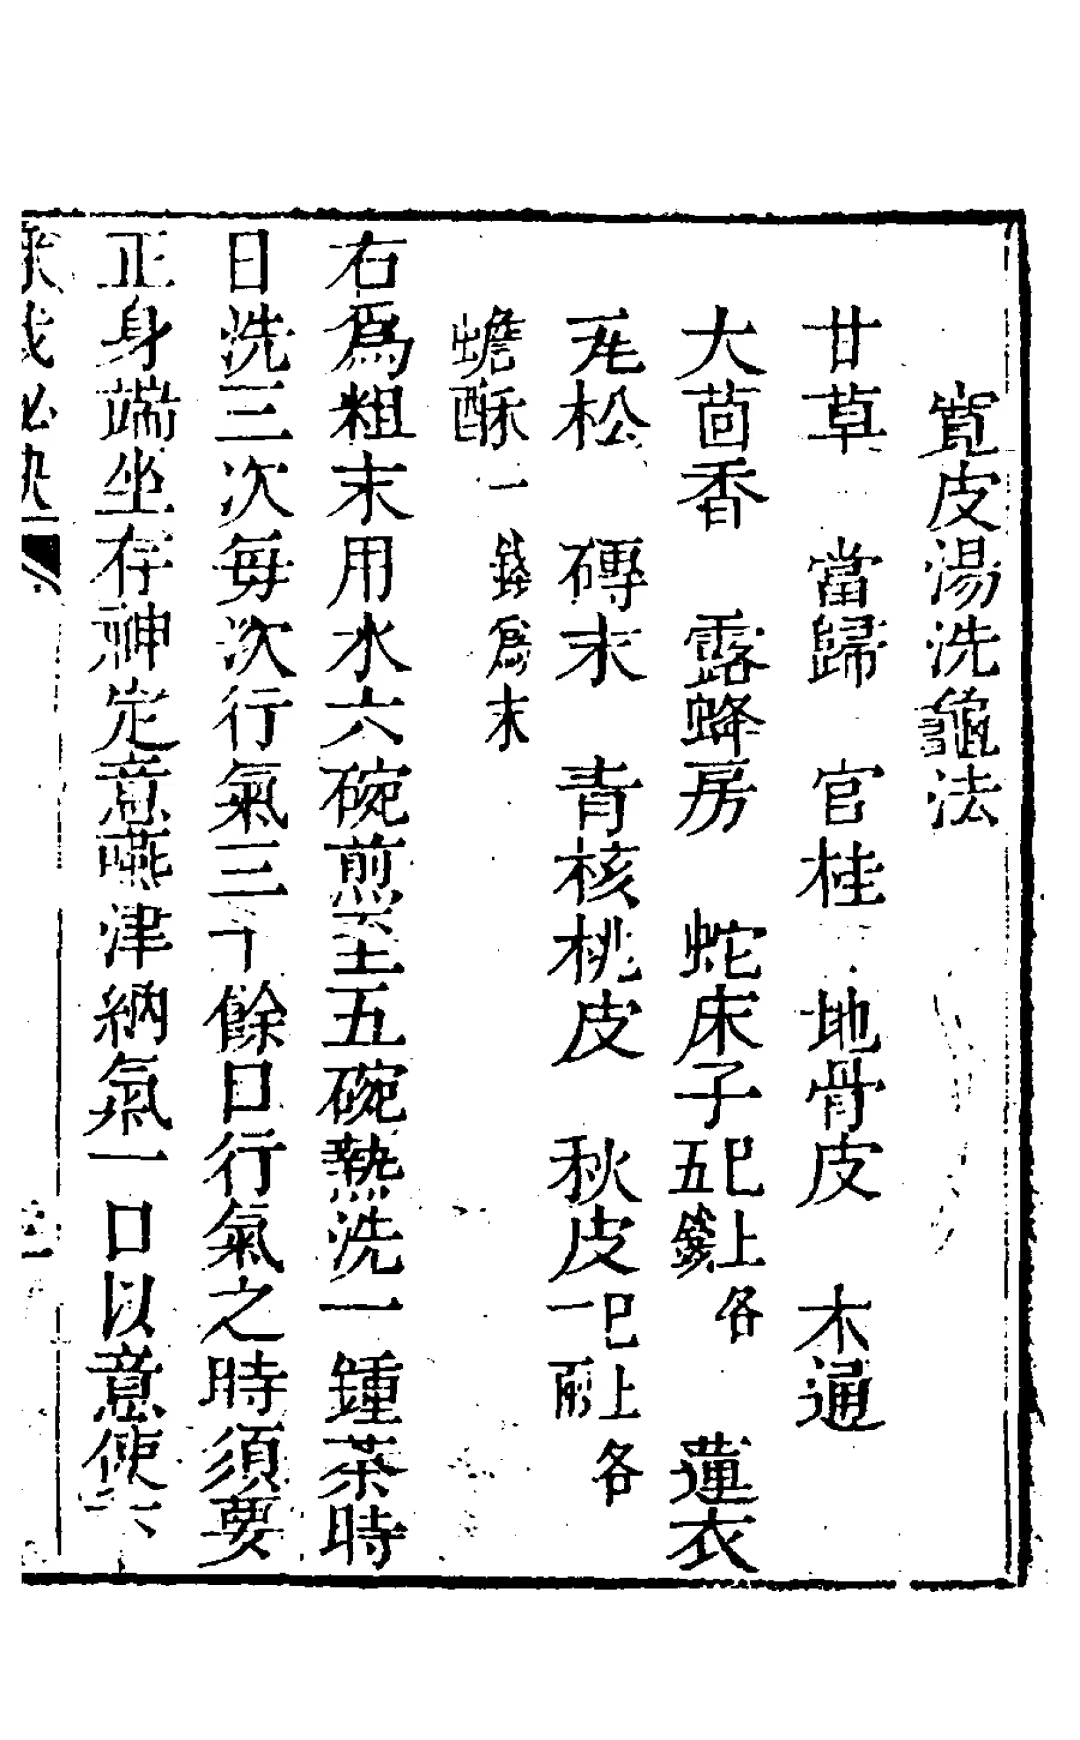 寬皮湯洗龜法
甘草　當歸　官桂　地骨皮　木通
大茴香　露蜂房　蛇床子巳上各五錢　蓮衣
瓦松　磚末　青核桃皮　秋皮巳上各一兩
蟾酥一錢爲末
右爲粗末用水六碗煎至五碗熱洗一鍾茶時
日洗三次每次行氣三十餘口行氣之時須要
正身端坐存神定意嚥津納氣一口以意使